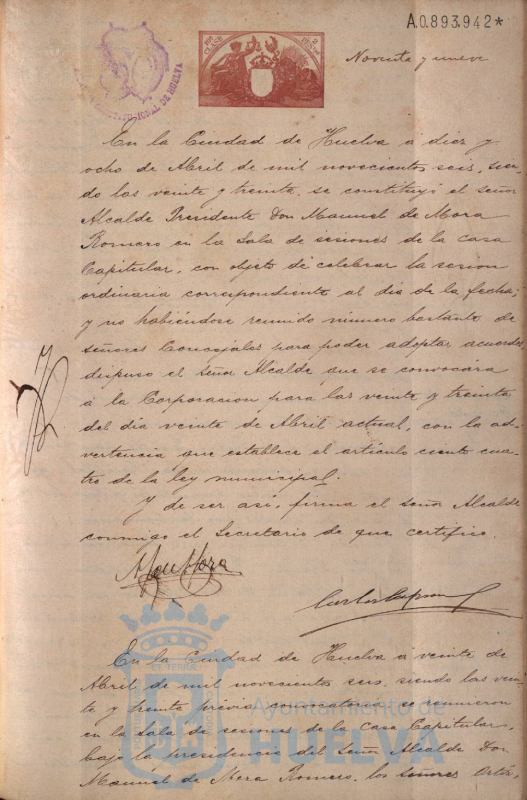 A.0.893.942*
Noventa y nueve
En la Ciudad de Huelva á diez y
ocho de Abril de mil novecientos seis, sien-
do las veinte y treinta, se constituyó el señor
Alcalde Presidente Don Manuel de Mora
Romero en la Sala de sesiones de la Casa
Capitular, con objeto de celebrar la sesion
ordinaria correspondiente al dia de la fecha;
y no habiéndose reunido número bastante de
señores Concejales para poder adoptar acuerdos,
dispuso el señor Alcalde que se convocára
á la Corporacion para las veinte y treinta
del dia veinte de Abril actual, con la ad-
vertencia que establece el artículo ciento cua-
tro de la ley municipal.
Y de ser así, firma el señor Alcalde
conmigo el Secretario de que certifico.
En la Ciudad de Huelva á veinte de
Abril de mil novecientos seis, siendo las vein-
te y treinta prévia convocatoria se reunieron
en la sala de sesiones de la Casa Capitular,
bajo la presidencia del Señor Alcalde Don
Manuel de Mora Romero, los señores
Ayuntamiento de
HUELVA